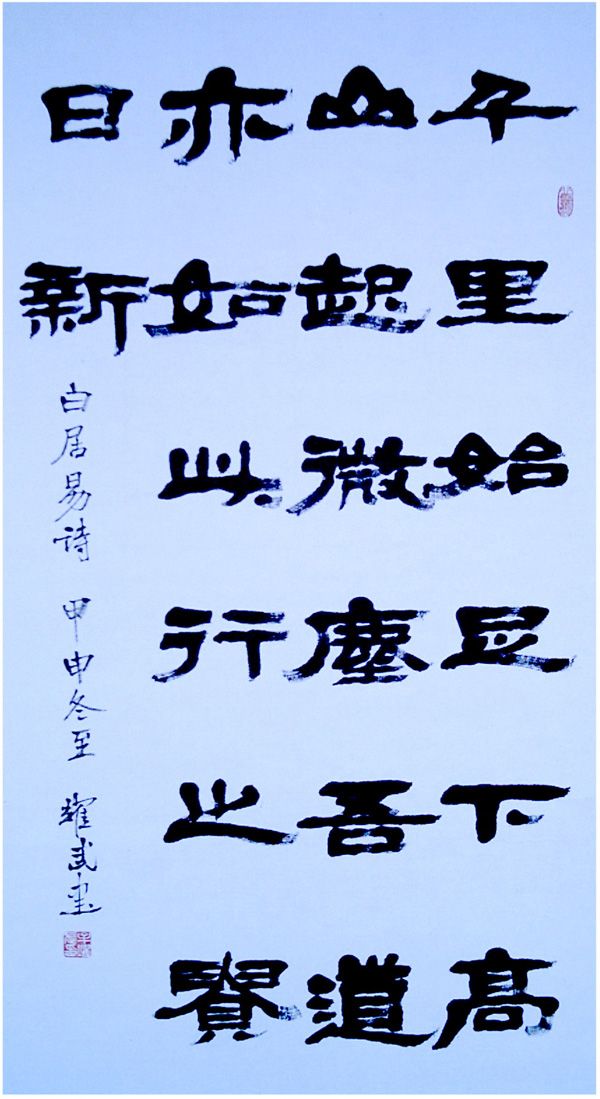 千里始足下高
山起微塵吾道
亦如此行之貴
日新
白居易诗 甲申冬至 耀武書